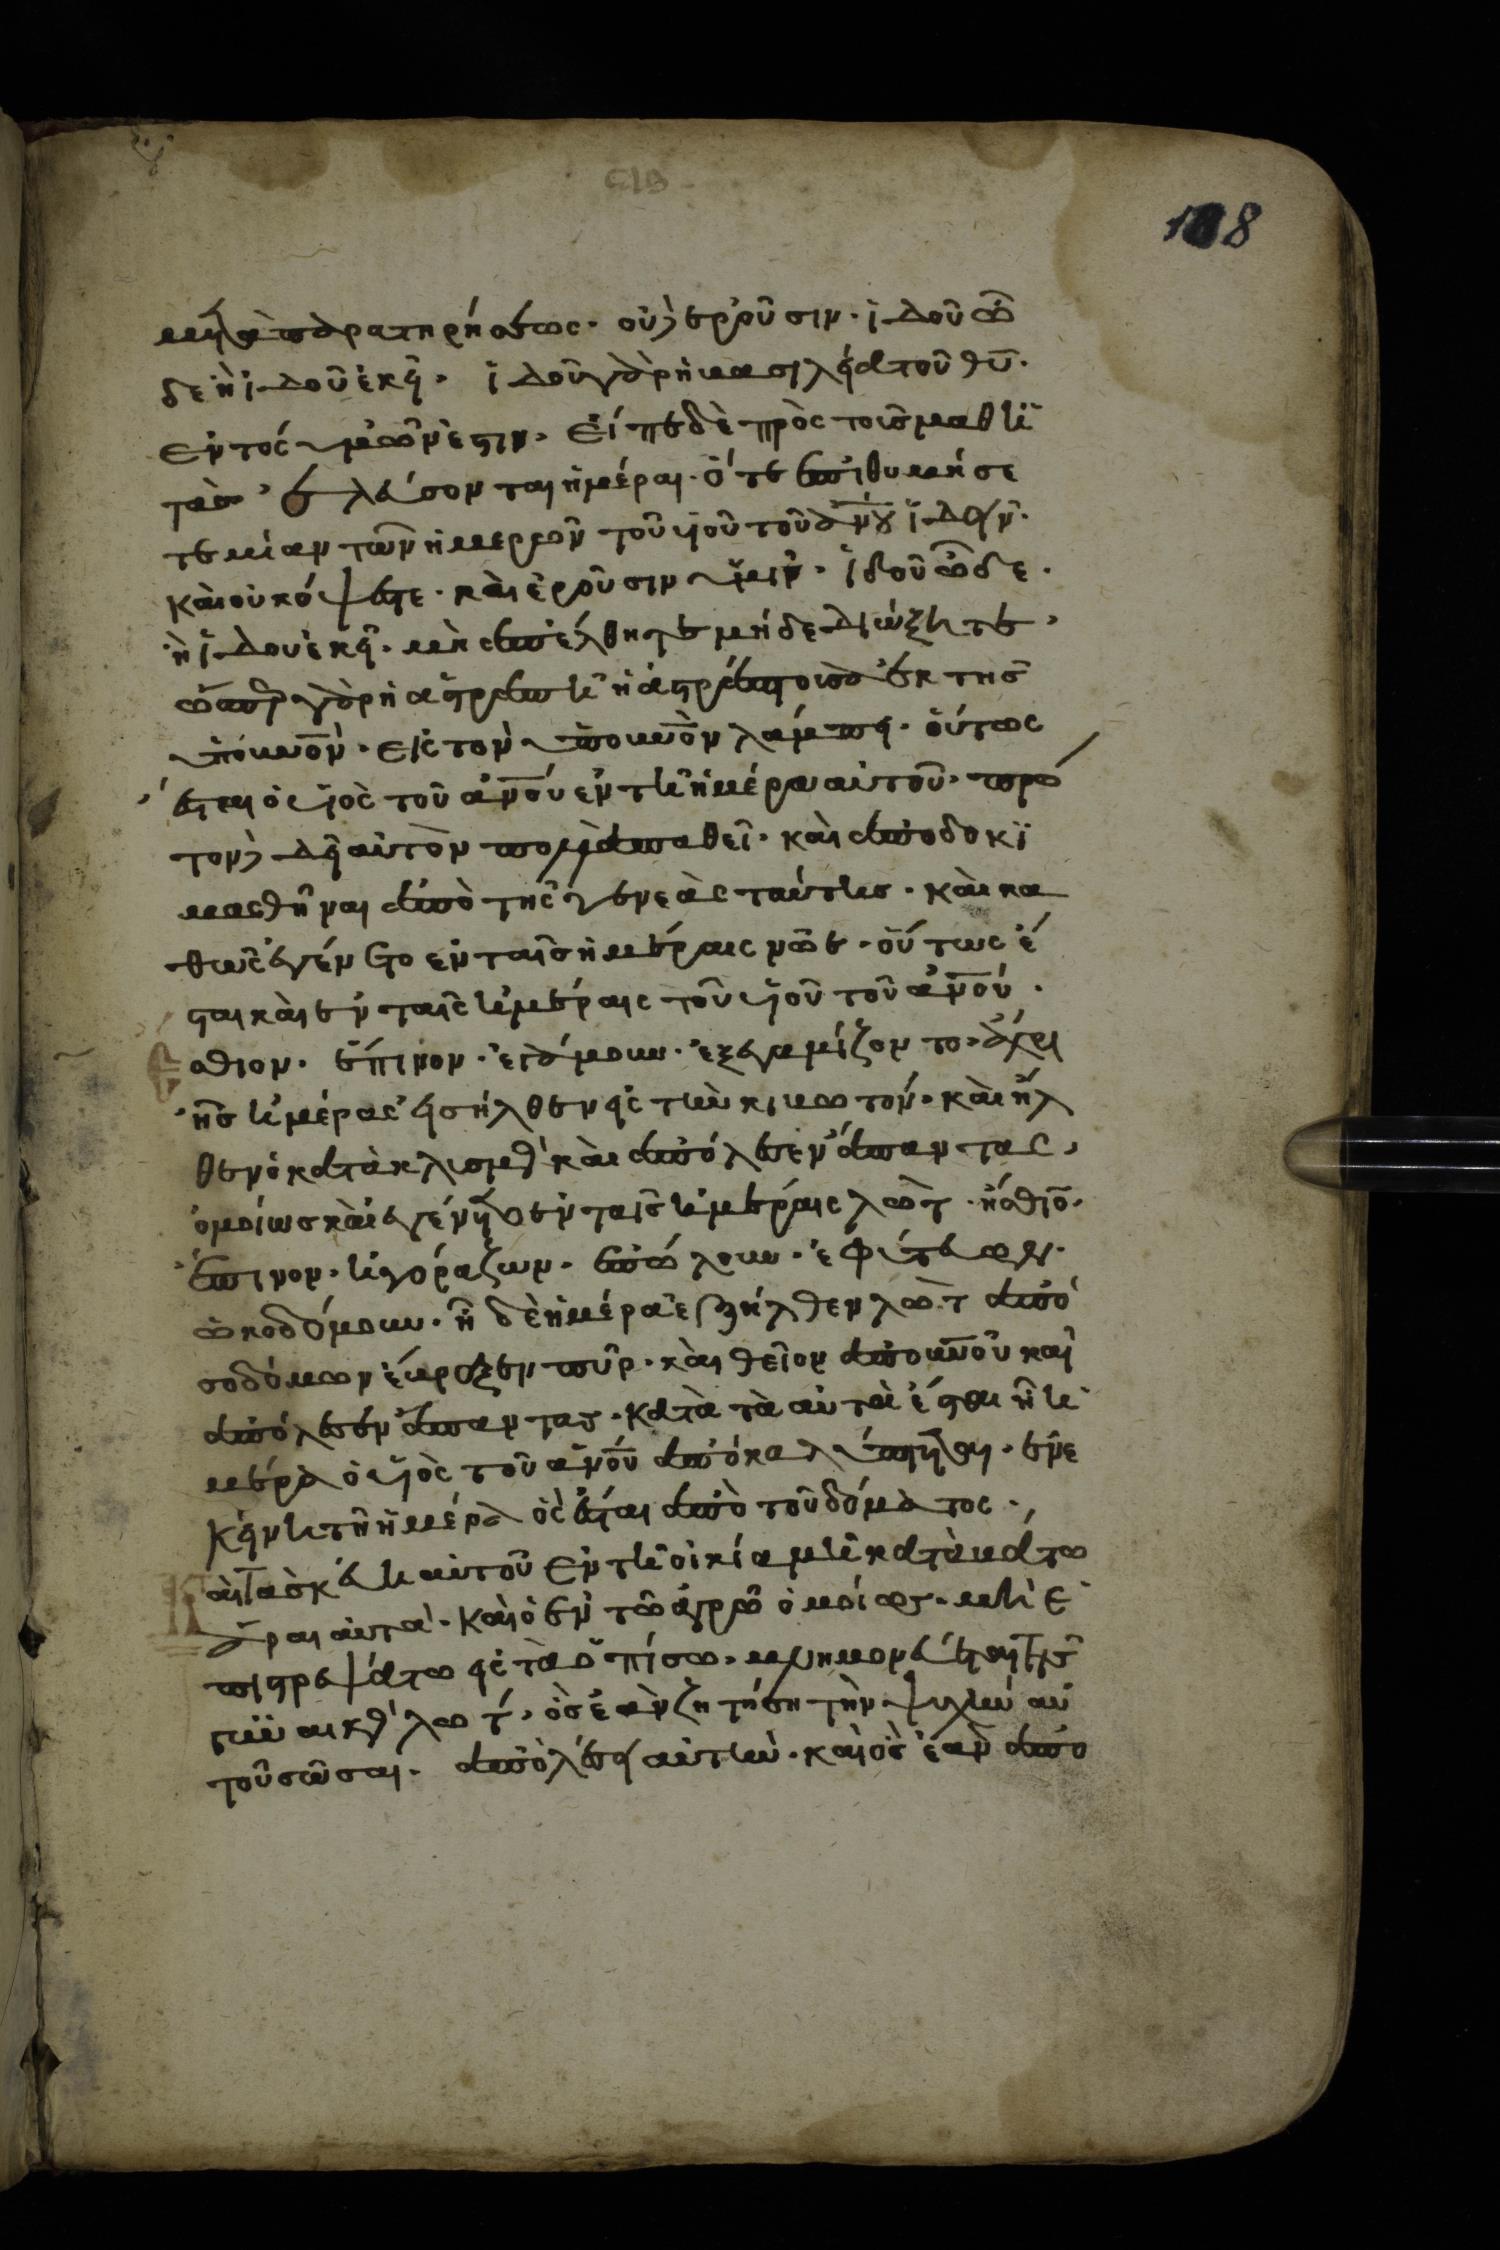 108
μετὰ παρατηρήσεως· οὐδ' ἐροῦσιν· ἰδοῦ ὧ
δε ἢ ἰδοῦ ἐκεῖ· ἰδοῦ γὰρ ἡ βασιλεία τοῦ θυ̅·
ἐντός ὑμῶν ἐστιν· Εἶπε δὲ πρὸς τοὺς μαθη
τὰς· ἐλεύσονται ἡμέραι· ὅτε ἐπιθυμήσε
τε μίαν τῶν ἡμερῶν τοῦ υἱοῦ τοῦ ἀν̅ου ἰδεῖν·
καὶ οὐκ ὄψεστε· καὶ ἐροῦσιν ὑμῖν· ἰδοῦ ὧδε·
ἢ ἰδοῦ ἐκεῖ· μὴ ἀπέλθητε μήδε διώξητε·
ὥσπερ γὰρ ἡ ἀστραπὴ ἡ ἀστράπτουσα ἐκ τῆς
ὑπ' οὐνο̅ν· εἰς τὸν ὑπ' οὐνο̅ν λάμπει· οὕτως
ἔσται ὁ υἱὸς τοῦ ἀνο̅ύ ἐν τῇ ἡμέρα αὐτοῦ· πρῶ
τον δεῖ αὐτὸν πολλὰ παθεῖ· καὶ ἀποδοκι
μασθῆναι ἀπὸ τῆς γενεὰς ταύτης· καὶ κα
θὼς ἐγένετο ἐν ταῖς ἡμέραις νῶε· οὕτως ἔ
σται καὶ ἐν ταῖς ἡμέραις τοῦ υἱοῦ τοῦ ἀνο̅ύ·
σθιον· ἔπινον· ἐγάμουν· ἐξεγαμίζοντο· ἄχρι
ἧς ἡμέρας εἰσήλθεν εἰς τὴν κιβωτόν· καὶ ἦλ
θεν ὁ κατακλισμὸ καὶ ἀπόλεσεν ἅπαντας·
ὁμοίως καὶ ἐγένετο ἐν ταῖς ἡμέραις λὼτ· ἤσθιο̅·
ἔπινον· ἠγόραζων· ἐπώλουν· ἐφύτευων·
ὠκοδόμουν· ἧ δὲ ἡμέρα ἐξήλθεν λὼτ ἀπὸ
σοδόμων ἔυρεξεν πῦρ· καὶ θεῖον ἀπ' οὐνο̅ῦ καὶ
ἀπόλεσεν ἅπαντας· κατὰ τὰ αὐτὰ ἔσται ἧ ἡ
μέρα ὁ υἱὸς τοῦ ἀνο̅ύ ἀποκαλύπτεται· ἐν ἐ
κείνη τῆ ἡμέρα ὃς ἔσται ἀπὸ τοῦ δόματος·
καὶ τὰ σκεύη αὐτοῦ ἐν τῇ οἰκία μὴ καταβάτω
ἄραι αὐτά· καὶ ὁ ἐν τῶ ἀγρῶ ὁμοίως· μὴ ἐ
πιστρεψάτω εἰς τὰ ὀπίσω· μνημονεύεται τῆς
γυναικὸ λώτ· ὃς ἐὰν ζητήση τὴν ψυχὴν αὐ
τοῦ σῶσαι· ἀπολέσει αὐτὴν· καὶ ὃς ἐὰν ἀπο